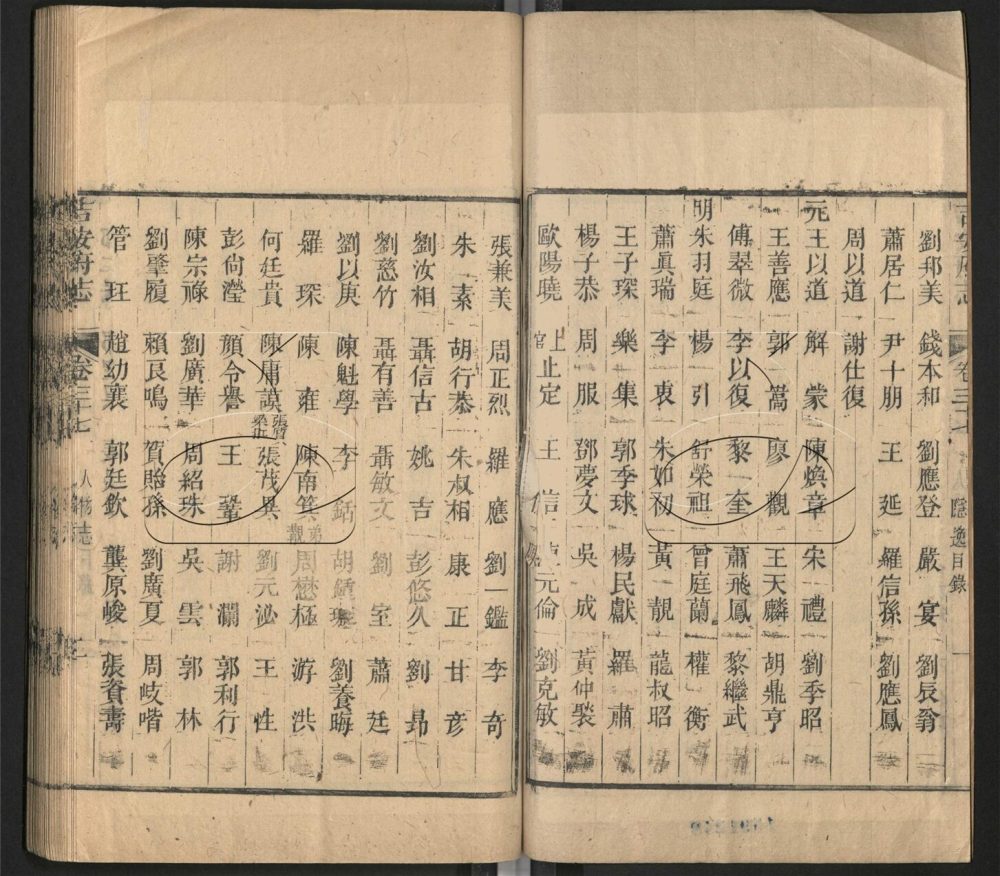 劉邦美 錢本和 劉應登 嚴宴 劉辰翁
蕭居仁 尹十朋 王延 羅信孫 劉應鳳
周以道 謝仕復
元 王以道 解蒙 陳煥章 宋禮 劉季昭
王善應 郭嵩 廖觀 王天麟 胡鼎亨
傅翠微 李以復 黎一奎 蕭飛鳳 黎繼武
明 朱羽庭 楊引 舒榮祖 曾庭蘭 權衡
蕭眞瑞 李衷 朱如初 黃靚 龍叔昭
王子琛 樂集 郭季球 楊民獻 羅肅
楊子恭 周服 鄧夢文 吳成 黃仲裝
歐陽曉 上官正定 王信 元倫 劉克敏
張兼美 周正烈 羅應 劉一鑑 李奇
朱素 胡行恭 朱叔相 康正 甘彥
劉汝相 聶信古 姚吉 彭悠久 劉昂
劉慈竹 聶有善 聶敏文 劉室 蕭廷
劉以庚 陳魁學 李銛 胡鍾 劉養晦
羅琛 陳雍 陳南箕 弟觀 周懋極 游洪
何廷貴 陳庸謨 張茂異 劉元泌 王性
彭尙瀅 顏令譽 王鞏 謝瀾 郭利行
陳宗祿 劉廣華 周紹珠 吳雲 郭林
劉肇履 賴良鳴 賀貽孫 劉廣夏 周岐喈
管玨 趙幼襄 郭廷欽 龔原峻 張資壽
吉安府志 卷三十七 人物志